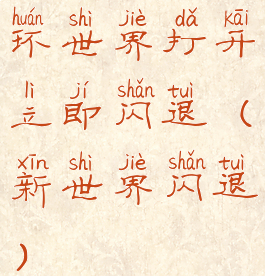 huán shì jiè dǎ kāi
环世界打开
lì jí shǎn tuì
立即闪退（
xīn shì jiè shǎn tuì
新世界闪退
）